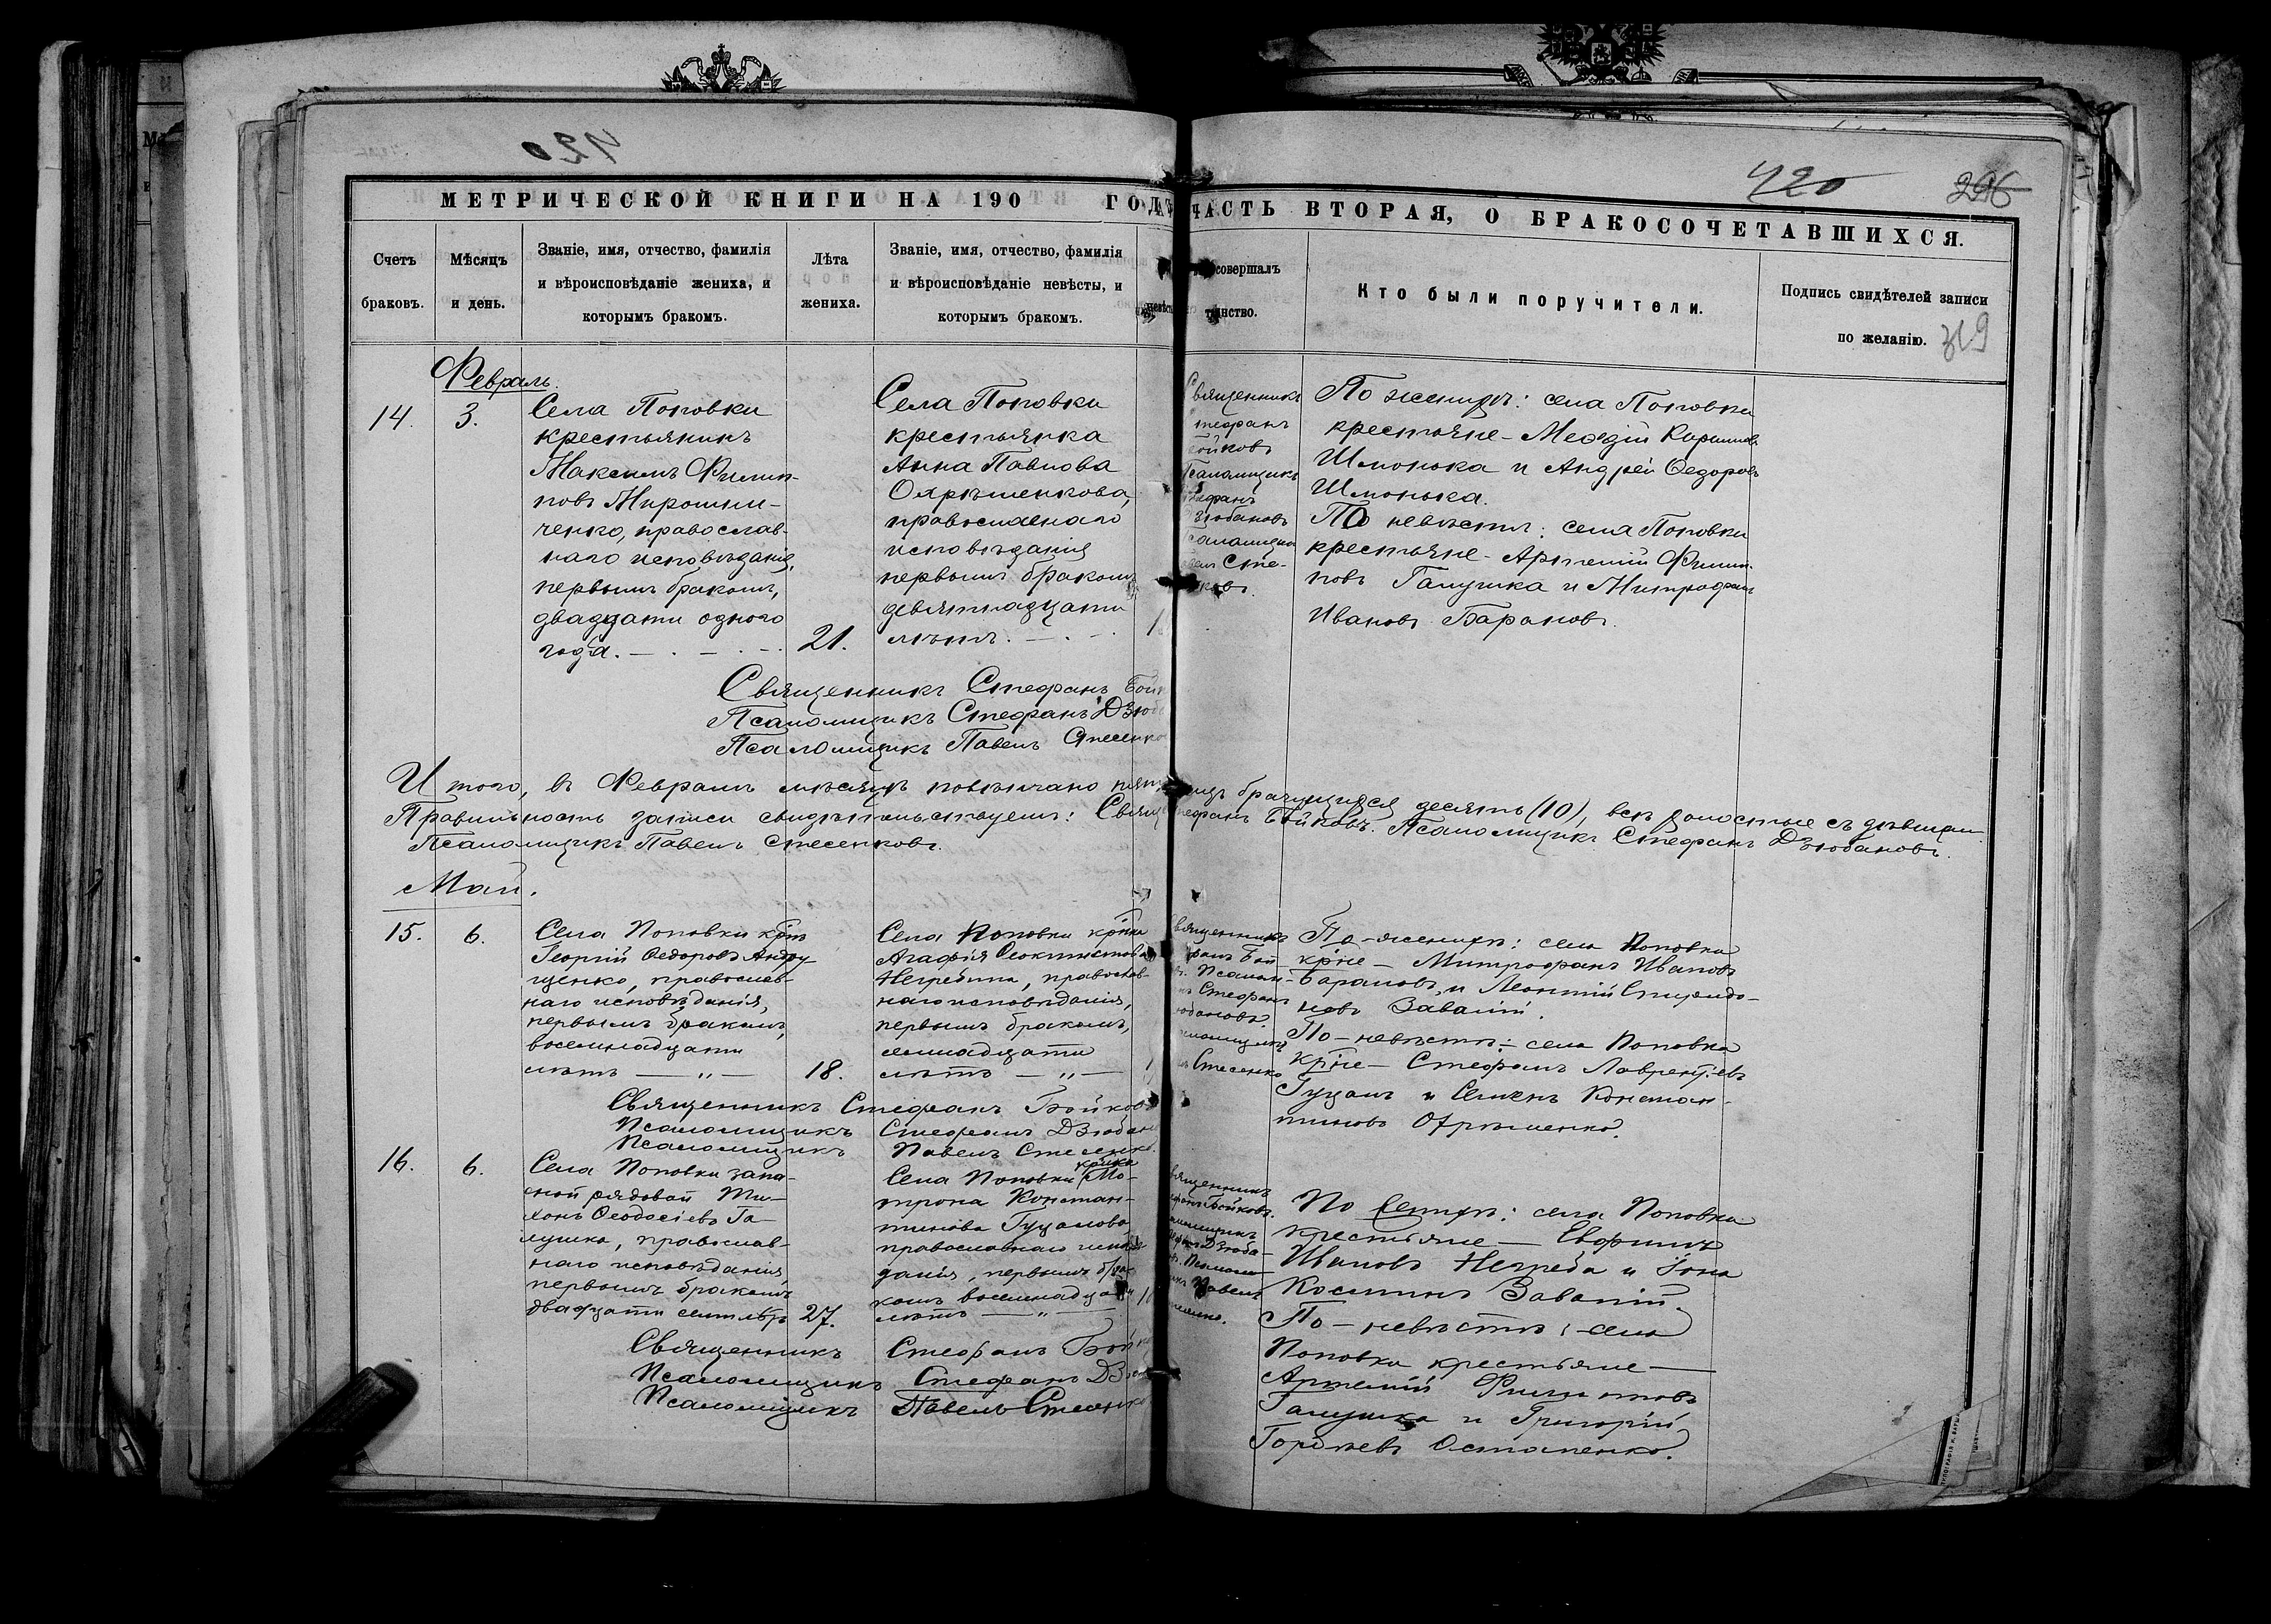 420
420
296
МЕТРИЧЕСКОЙ КНИГИ НА 190 ГОДЪ
ЧАСТЬ ВТОРАЯ, О БРАКОСОЧЕТАВШИХСЯ.
Счетъ
браковъ.
Мѣсяцъ
и день.
Званіе, имя, отчество, фамилія
и вѣроисповѣданіе жениха, и
которымъ бракомъ.
Лѣта
жениха.
Званіе, имя, отчество, фамилія
и вѣроисповѣданіе невѣсты, и
которымъ бракомъ.
совершалъ
таинство.
Кто были поручители.
Подпись свидѣтелей записи
по желанію.
319
Февраль.
14.
3.
Села Поповки
крестьянинъ
Максимъ Филип-
повъ Мирошни-
ченко, православ-
наго исповѣданія,
первымъ бракомъ,
двадцати одного
года.
21.
Села Поповки
крестьянка
Анна Павлова
православнаго
исповѣданія
первымъ бракомъ
девятнадцати
лѣтъ.
Священникъ
Стефанъ
Бойковъ
Псаломщикъ
Стефанъ
Дзюбановъ
Псаломщикъ
По женихѣ: села Поповки
крестьяне - Меѳодій
Шмонька и Андрей Ѳедоровъ
Шмонька.
По невѣстѣ: села Поповки
крестьяне - Артемій Филип-
повъ Галушка и Митрофанъ
Ивановъ Барановъ.
Священникъ Стефанъ Бойк
Псаломщикъ Стефанъ Дзюб
Псаломщикъ Павелъ Стесенко
Итого, въ Февралѣ мѣсяцѣ повѣнчано пять
брачущихся десять (10), всѣ холостые съ дѣвицами
Правильность записи свидѣтельствуемъ: Священ
Стефанъ Бойковъ. Псаломщикъ Стефанъ Дзюбановъ.
Псаломщикъ Павелъ Стесенковъ.
Май.
15.
6.
Села Поповки кр̃нъ
Георгій Ѳедоровъ Андру
щенко, православ-
наго исповѣданія,
первымъ бракомъ,
восемнадцати
лѣтъ — „ —
18.
Села Поповки кр̃нка
Агафія Ѳеоктистова
Негребина, православ-
наго исповѣданія,
первымъ бракомъ,
семнадцати
лѣтъ — „ —
Священникъ
Псалом-
Стефанъ
Стесенко
По-женихѣ: села Поповки
кр̃не - Митрофанъ Ивановъ
Барановъ, и Леонтій Спиридо-
новъ Завалій.
По-невѣстѣ: села Поповки
кр̃не - Стефанъ Лаврентіевъ
Гуцалъ и Семенъ Констан-
тиновъ Отришенко.
Священникъ Стефанъ Бойковъ
Псаломщикъ Стефанъ Дзюбан
Псаломщикъ Павелъ Стесенко
16.
6.
Села Поповки запа-
сной рядовой Ти-
хонъ Ѳеодосіевъ Га-
лушка, православ-
наго исповѣданія,
первымъ бракомъ
двадцати семи лѣтъ
27.
кр̃нка
Села Поповки Мо-
трона Констан-
тинова Гуцалова
православнаго исповѣ
данія, первымъ бра-
комъ восемнадцати
лѣтъ — „ —
Священникъ
Бойковъ.
Павелъ
По женихѣ: села Поповки
крестьяне — Евфимъ
Ивановъ Негреба и Іона
Косминъ Завалій.
По-невѣстѣ: села
Поповки крестьяне —
Артемій Филиповъ
Галушка и Григорій
Гордѣевъ Остапенко.
Священникъ Стефанъ Бойк
Псаломщикъ Стефанъ Дз
Псаломщикъ Павелъ Стесенко